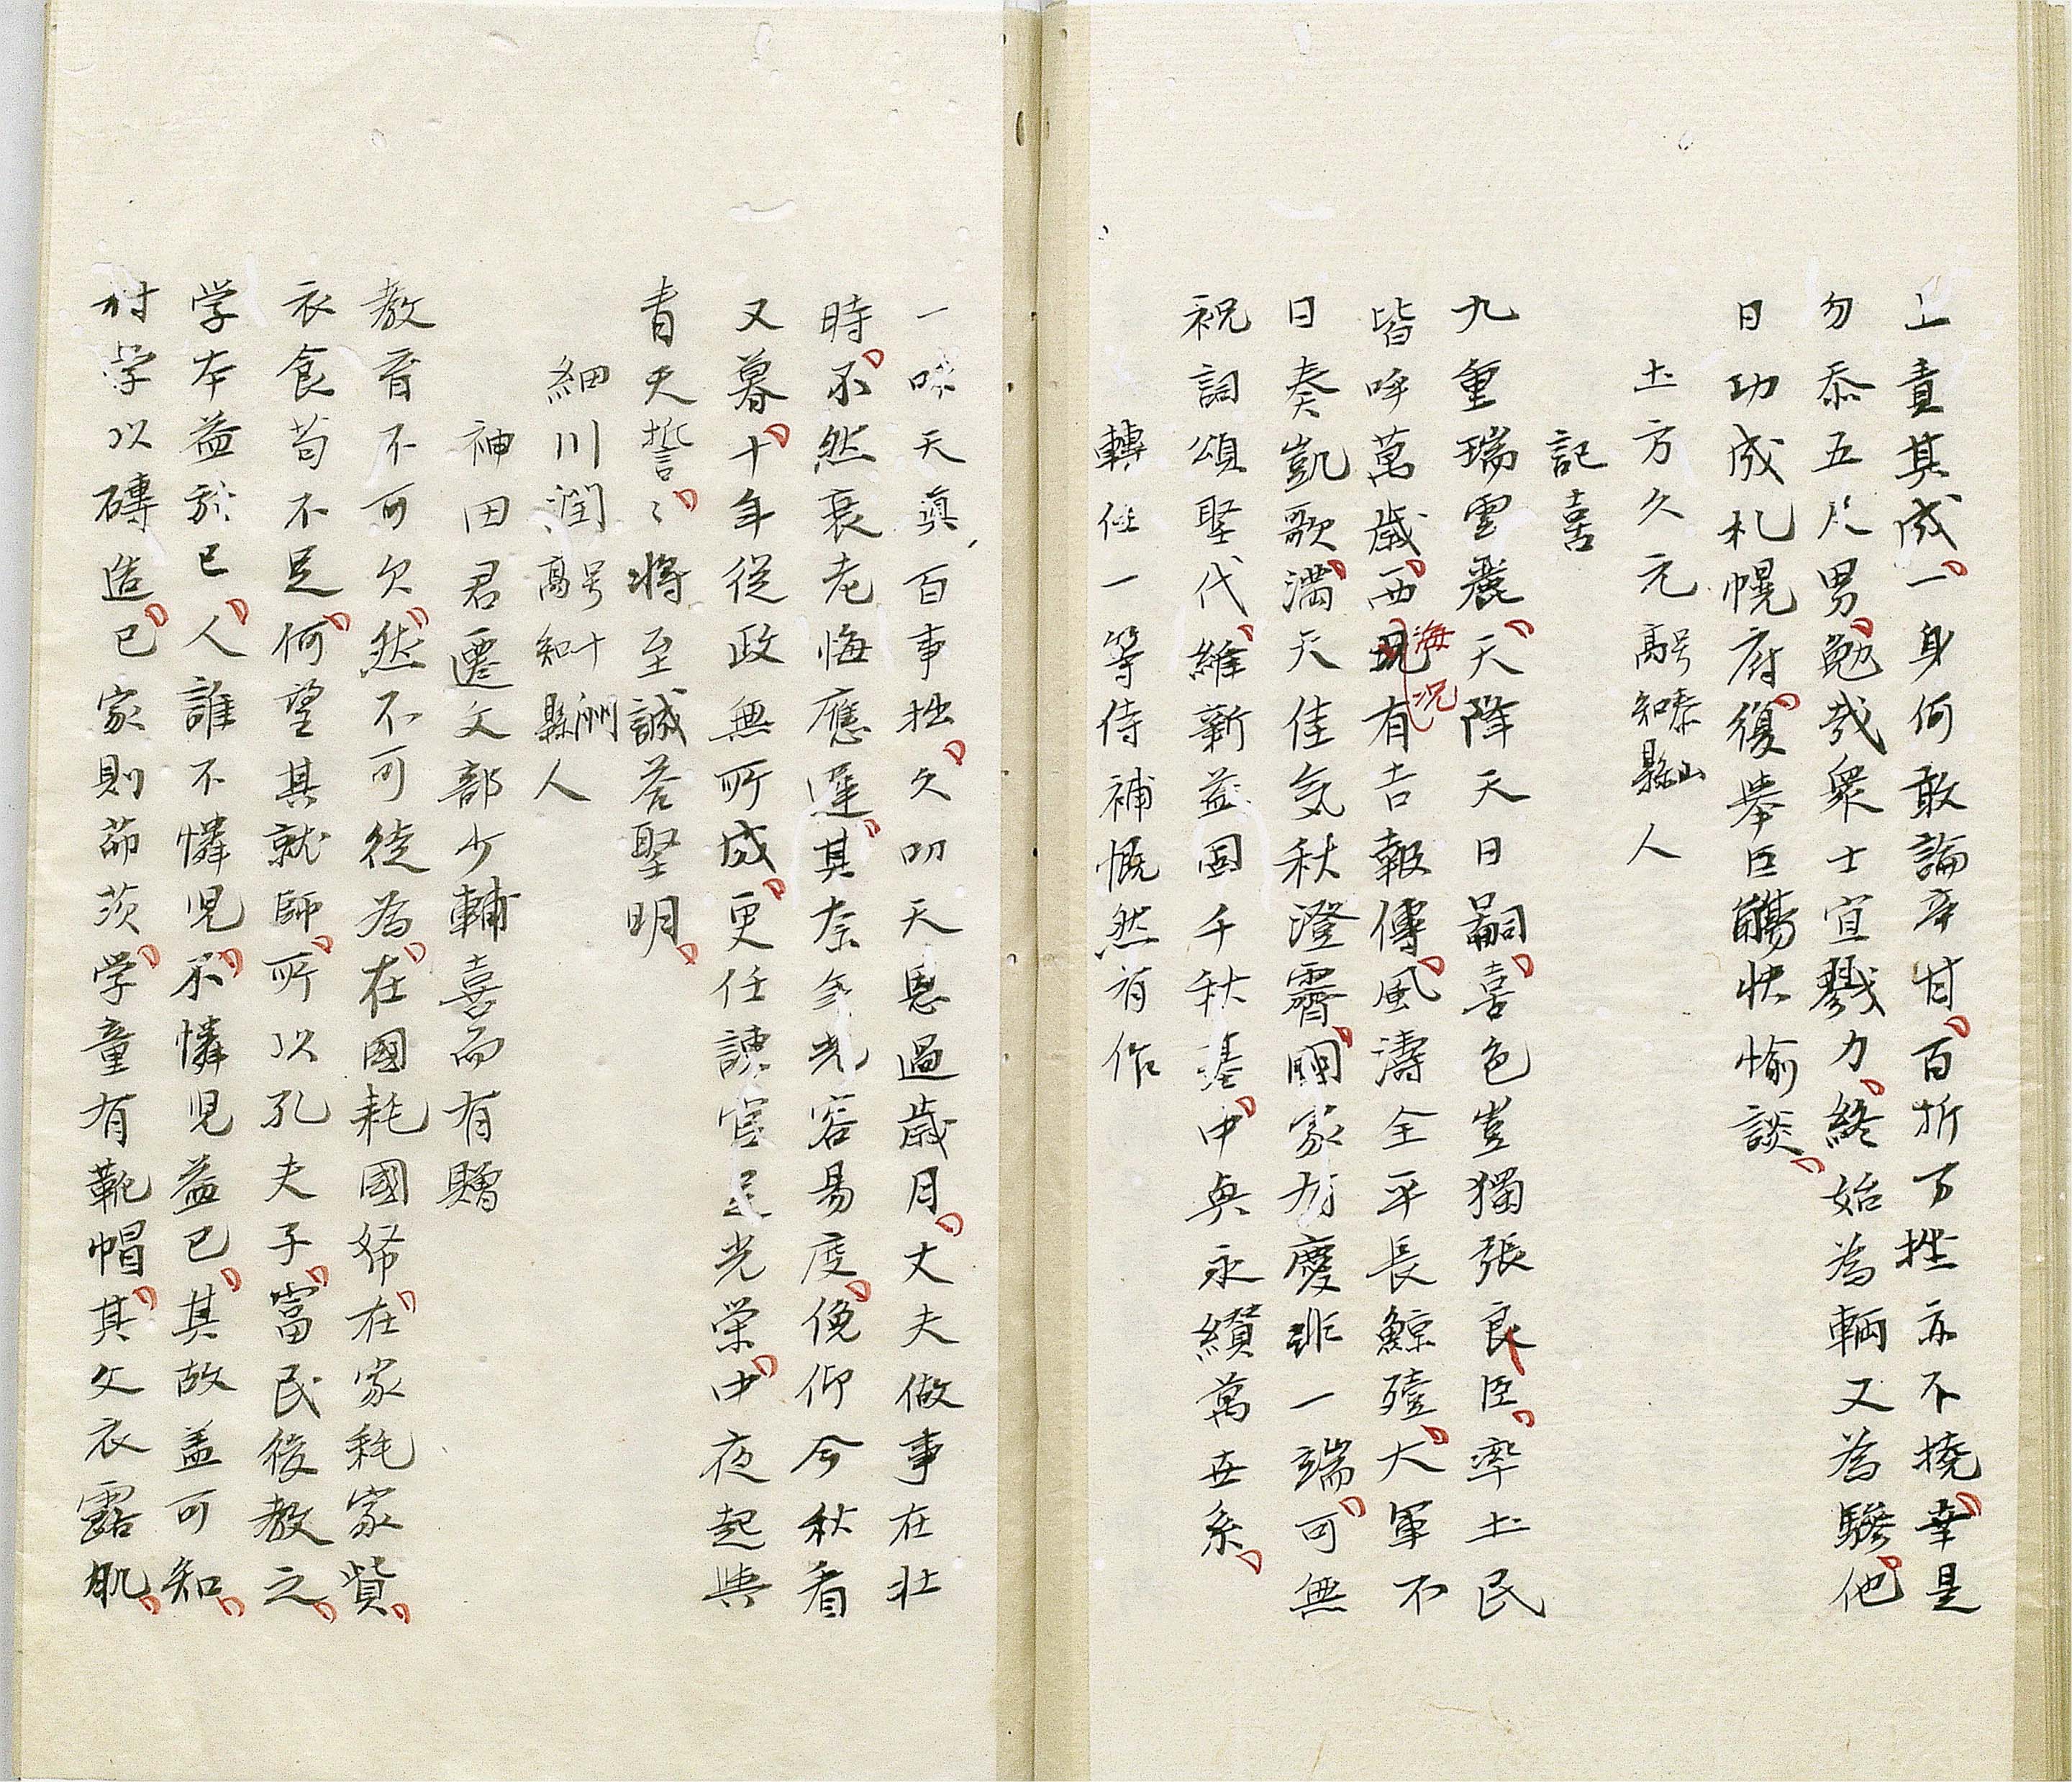 上責其成一身何敢論辛甘百折万挫亦不撓幸是
勿忝五尺男勉哉衆士宜戮力終始為輌又為驂他
日功成札幌府復挙巨觴快愉談
土方久元号秦山高知縣人
記喜
九重瑞雲麗天降天日嗣喜色豈獨張良臣率土民
皆呼萬歳西海況有吉報傳風濤全平長鯨殪大軍不
日奏凱歌満天佳気秋澄霽國家有慶非一端可無
祝詞頌聖代維新益固千秋基中興永纉萬世系
轉任一等侍補慨然有作
一味天真百事拙久叨天恩過歳月丈夫做事在壮
時不然衰老悔應遅其奈兔光容易度俛仰今秋看
又暮十年従政無所成更任諌官足光栄中夜起與
青天誓誓将至誠答聖明
細川潤号十洲高知縣人
神田君遷文部少輔喜而有贈
教育不可欠然不可徒為在國耗國帑在家耗家貲
衣食苟不足何望其就師所以孔夫子富民後教之
学本益於己人誰不憐児不憐児益己其故盖可知
村学以磚造己家則茆茨学童有靴帽其父衣露肌